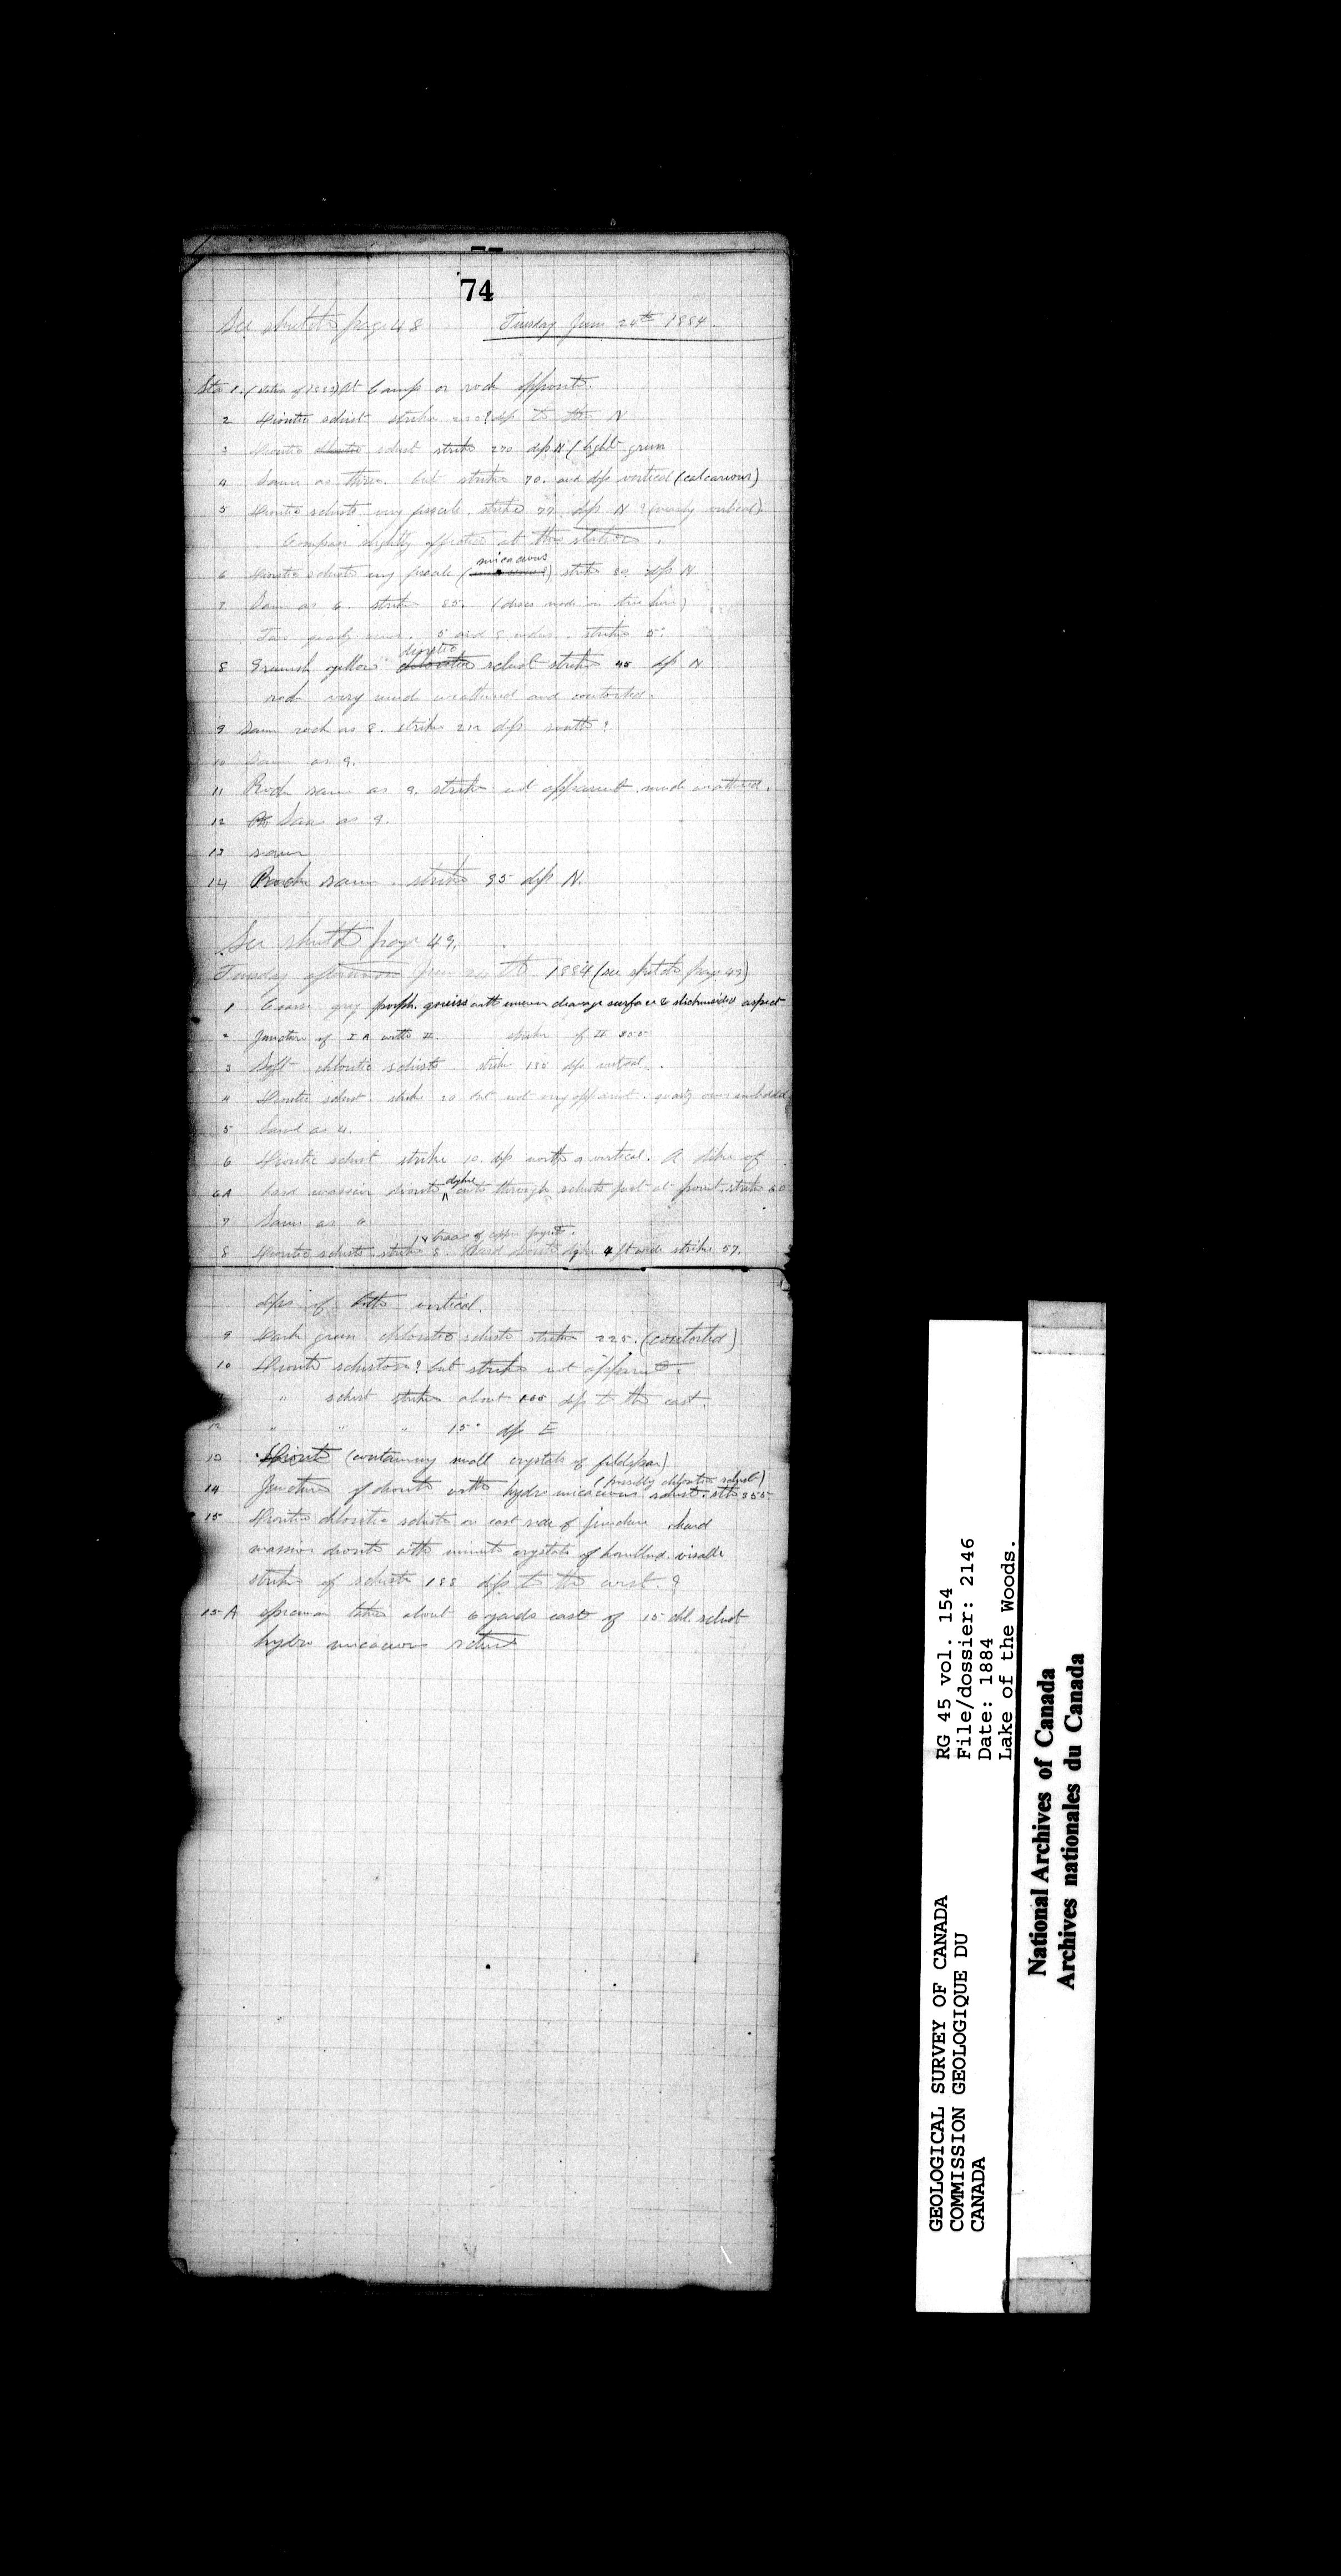 74
See sketch page 48 Tuesday June 24th 1884.
Sta 1. (station of 1883) At Camp on rock opposite.
2 Dioritic schist strike 250? dip to the N
3 Dioritic schist strike 270 dip N (light green
4 Same as three. but strike 70. and dip vertical (calcareous)
5 Dioritic schists very fissile. strike 77. dip N ? (nearly vertical).
Compass slightly affected at this station.
6 Dioritic schists very fissile (micaceous) strike 80 dip N
7 Same as 6. strike 85.
Two quartz veins. 5 and 8 inches. strike 5°
8 Greenish yellow dioritic schist strike 45 dip N
rock very much weathered and contorted.
9 Same rock as 8. strike 212 dip south?
10 Same as 9.
11 Rock same as 9. strike not apparent. much weathered.
12 Same as 9.
13 same
14 Rock same. strike 85 dip N.
See sketch page 49.
Tuesday afternoon June 24th 1884 (see sketch page 49)
1 Coarse grey porph. gneiss with uneven cleavage surface & slickensided aspect
2 Juncture of I A with II. strike of II 355
3 Soft chloritic schists. strike 185 dip vertical.
4 Dioritic schist. strike 20 but not very apparent. quartz veins imbedded
5 Same as 4.
6 Dioritic schist strike 10. dip north or vertical. A dike of
6A hard massive diorite dyke cuts through schists just at front. strike 60
7 Same as 6
8 Dioritic schists. strike 8. traces of copper pyrites. Hard diorite dyke 4 ft wide strike 57.
dips of both vertical.
9 Dark green chloritic schists strike 225. (contorted)
10 Diorite schistose? but strike not apparent.
" schist strike about 185 dip to the east.
12 " " " 15° dip E
13 Diorite (containing small crystals of feldspar)
14 Juncture of diorite with hydro micaceous schist. (possibly chloritic schist) stk 355
15 Dioritic chloritic schists on east side of juncture. hard
massive diorite with minute crystals of hornblend visable
strike of schists 188 dip to the west.?
15A specimen taken about 6 yards east of 15 chl. schist
hydro micaceous schist
GEOLOGICAL SURVEY OF CANADA
COMMISSION GEOLOGIQUE DU
CANADA
RG 45 vol. 154
File/dossier: 2146
Date: 1884
Lake of the Woods.
National Archives of Canada
Archives nationales du Canada